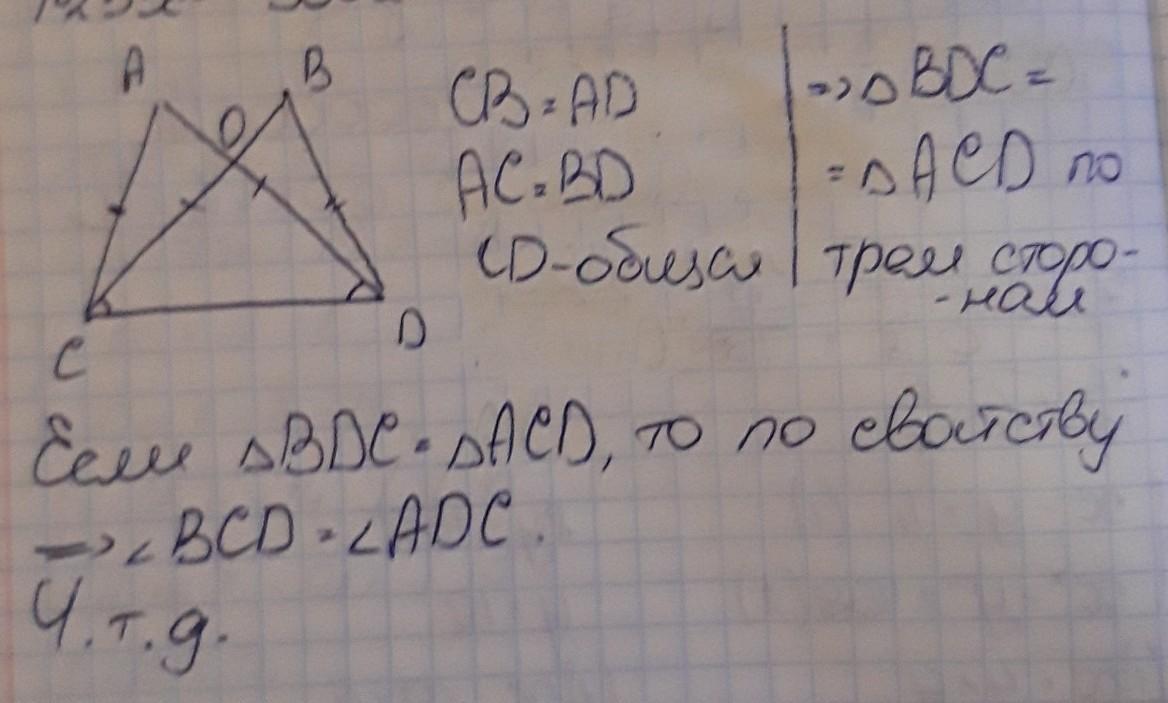 A
B
O
C
D
CB = AD
AC = BD
CD - общая
=> △ BDC =
= △ ACD по
трем сторо-
-нам
Если △BDC = △ACD, то по свойству
=> ∠BCD = ∠ADC.
Ч.т.д.